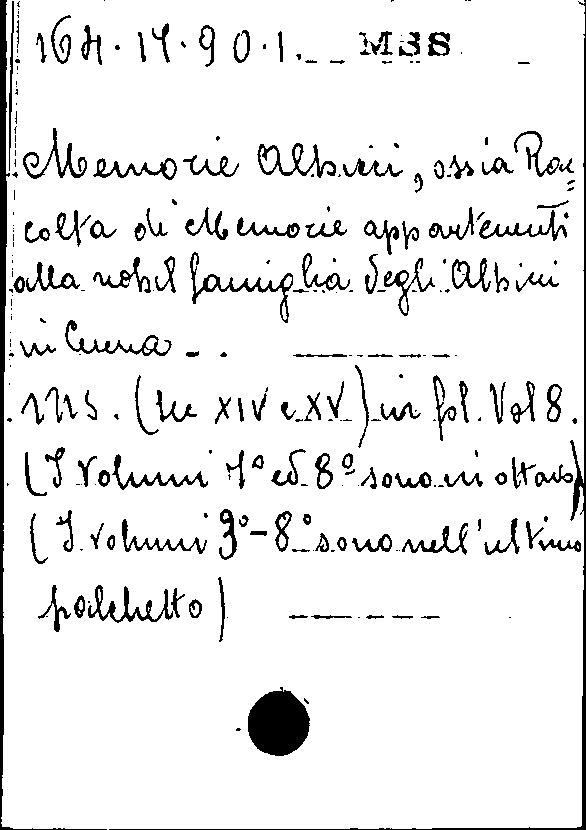 164.17.90.1. MSS
Memorie Albizi, ossia Rac=
colta di Memorie appartenenti
alla nobil famiglia degli Albizi
in
ms. (Sec XIV e XV) in fol. Vol 8.
(I Volumi 7º ed 8º sono in ottavo)
(I volumi 3º-8º sono nell'ultimo
palchetto)